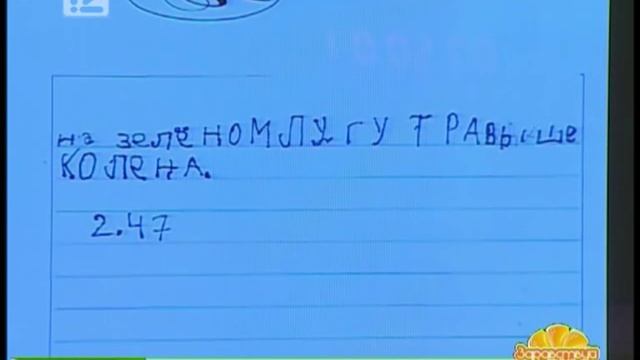 на зелёНОМЛУГУ ТРАВыше
КОЛЕНА.
2.47
Здравствуй